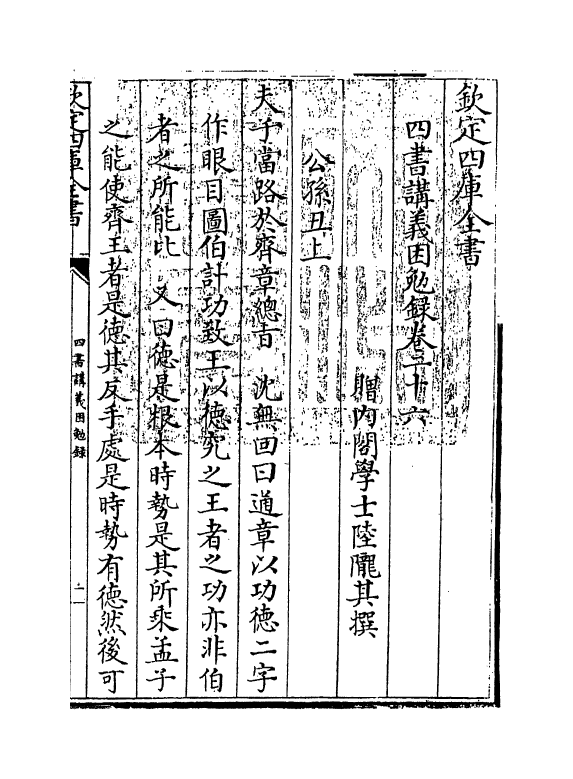 欽定四庫全書
四書講義困勉録卷二十六
贈内閣學士陸隴其撰
公孫丑上
夫子當路於齊章總旨 沈無回曰通章以功徳二字
作眼目圖伯計功致王以徳究之王者之功亦非伯
者之所能比 又曰徳是根本時勢是其所乘孟子
之能使齊王者是徳其反手處是時勢有徳然後可
欽定四庫全書
四書講義困勉録